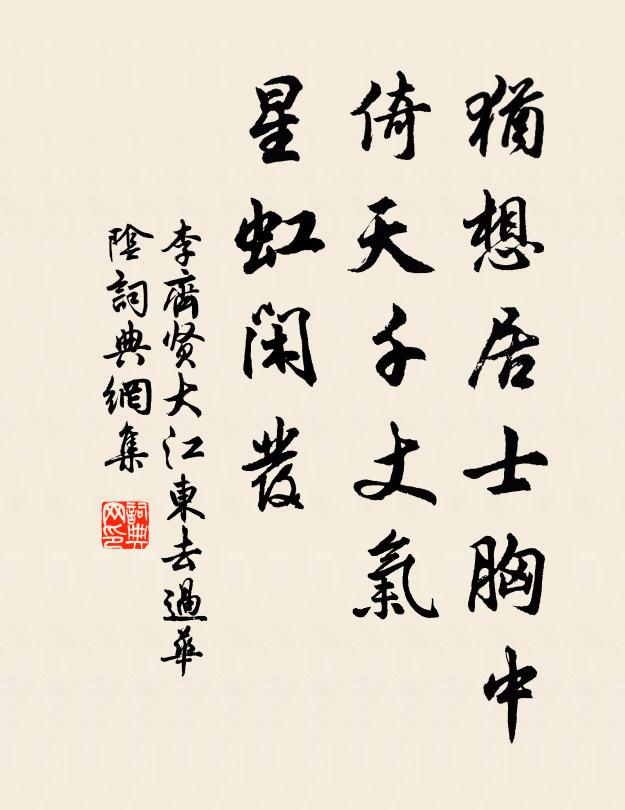 猶想居士胸中
倚天千丈氣
星虹閑發
李齊贤大江東去過華
陰詞典網集
詞典网印